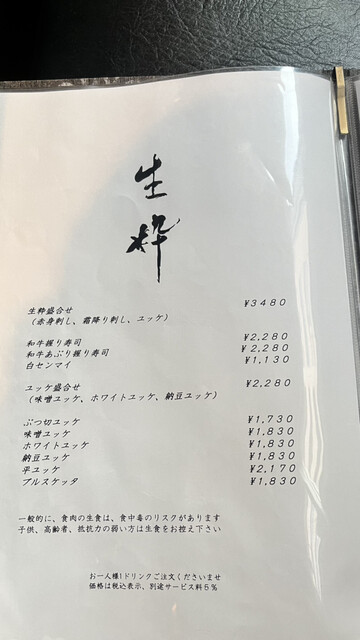 生粋
生粋盛合せ ¥3480
(赤身刺し、霜降り刺し、ユッケ)
和牛握り寿司 ¥2,280
和牛あぶり握り寿司 ¥2,280
白センマイ ¥1,130
ユッケ盛合せ ¥2,280
(味噌ユッケ、ホワイトユッケ、納豆ユッケ)
ぶつ切ユッケ ¥1,730
味噌ユッケ ¥1,830
ホワイトユッケ ¥1,830
納豆ユッケ ¥1,830
平ユッケ ¥2,170
ブルスケッタ ¥1,830
一般的に、食肉の生食は、食中毒のリスクがあります
子供、高齢者、抵抗力の弱い方は生食をお控え下さい
お一人様1ドリンクご注文くださいませ
価格は税込表示、別途サービス料5%